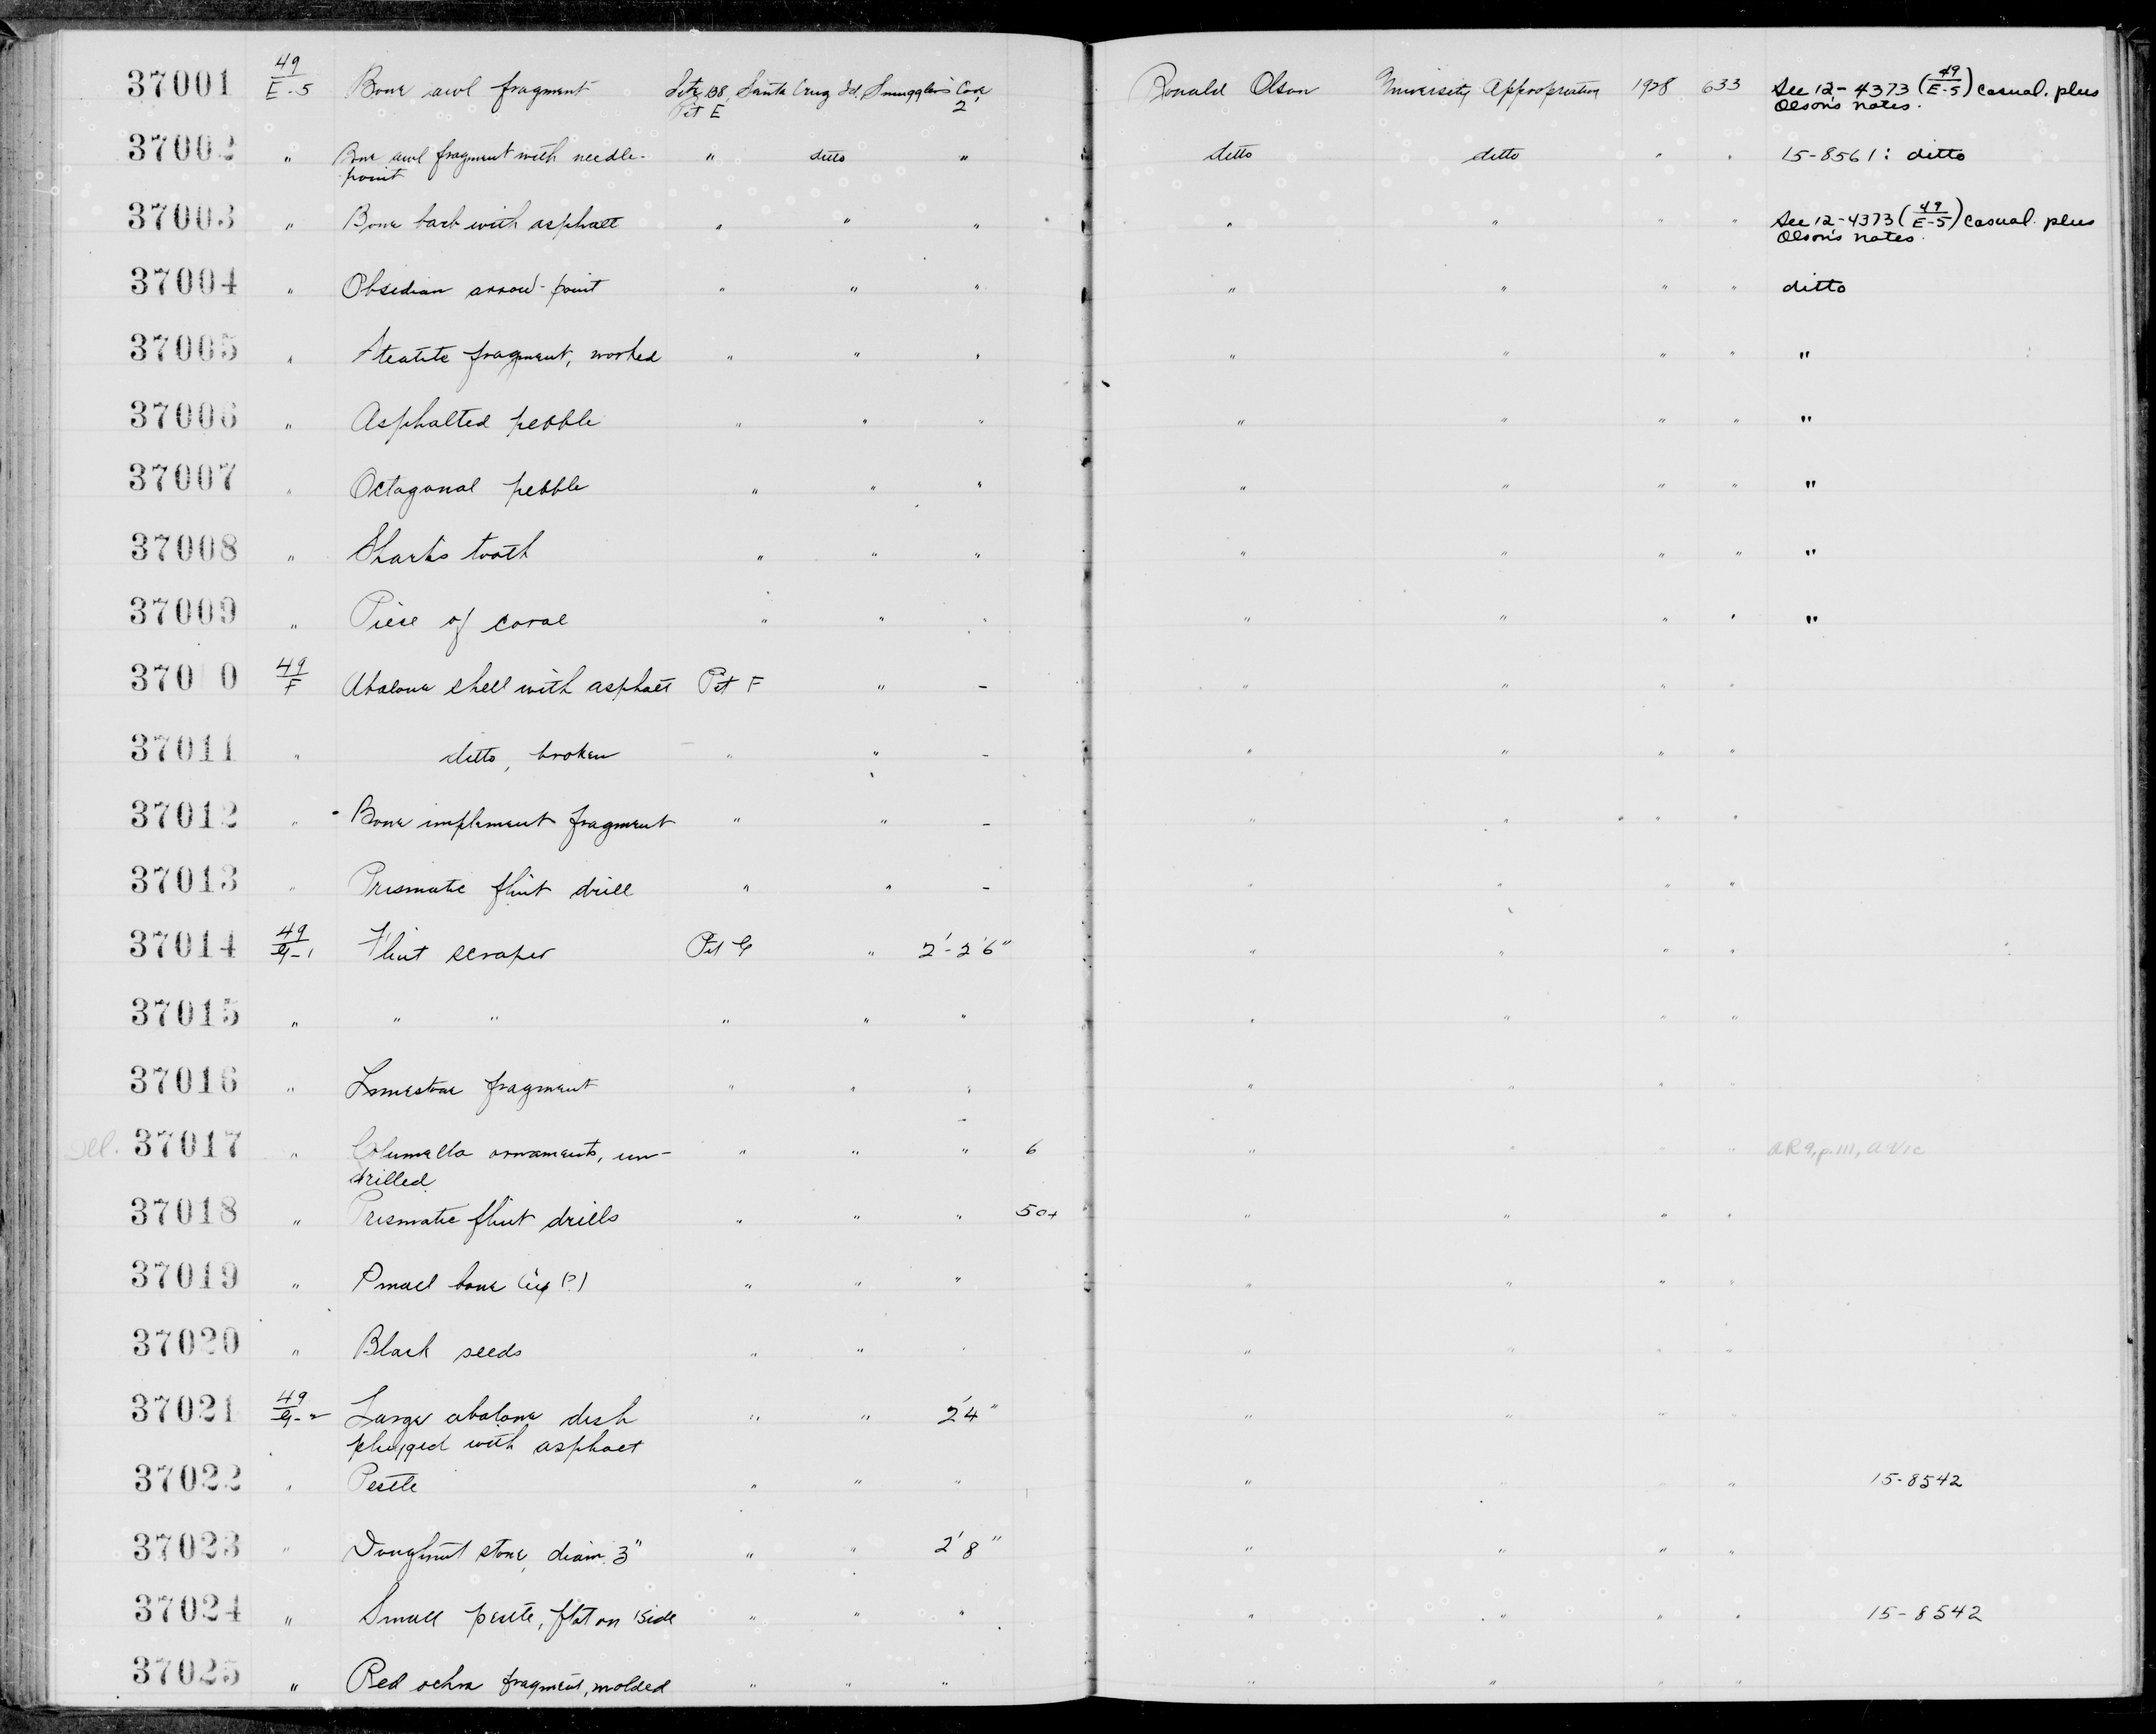 37001 49/E-5 Bone awl fragment Site 138, Santa Cruz Isl, Smuggler's Cove, Ronald Olson University Appropriation 1928 633 See 12-4373 (49/E-5) casual. plus
Pit E 2 Olson's notes.
37002 " Bone awl fragment with needle- " ditto " ditto ditto " " 15-8561: ditto
point
37003 " Bone barb with asphalt " " " " " " " See 12-4373 (49/E-5) casual. plus
Olson's notes.
37004 " Obsidian arrow-point " " " " " " " ditto
37005 " Steatite fragment, worked " " " " " " " "
37006 " Asphalted pebble " " " " " " " "
37007 " Octagonal pebble " " " " " " " "
37008 " Shark's tooth " " " " " " " "
37009 " Piece of coral " " " " " " " "
370 0 49/F Abalone shell with asphalt Pit F " - " " " "
37011 " ditto, broken " " - " " " "
37012 " Bone implement fragment " " - " " " "
37013 " Prismatic flint drill " " - " " " "
37014 49/G-1 Flint scraper Pit G " 2'-2'6" " " " "
37015 " " " " " " " " " "
37016 " Limestone fragment " " " " " " "
37017 " Columella ornaments, un- " " " 6 " " " " AR9, p. 111,
drilled
37018 " Prismatic flint drills " " " 50+ " " " "
37019 " Small bone (?) " " " " " " "
37020 " Black seeds " " " " " " "
37021 49/G-2 Large abalone dish " " 2'4" " " " "
plugged with asphalt
37022 " Pestle " " " " " " " 15-8542
37023 " Doughnut stone, diam. 3" " " 2'8" " " " "
37024 " Small pestle, flat on 1 side " " " " " " " 15-8542
37025 " Red ochre fragment, molded " " " " " " "